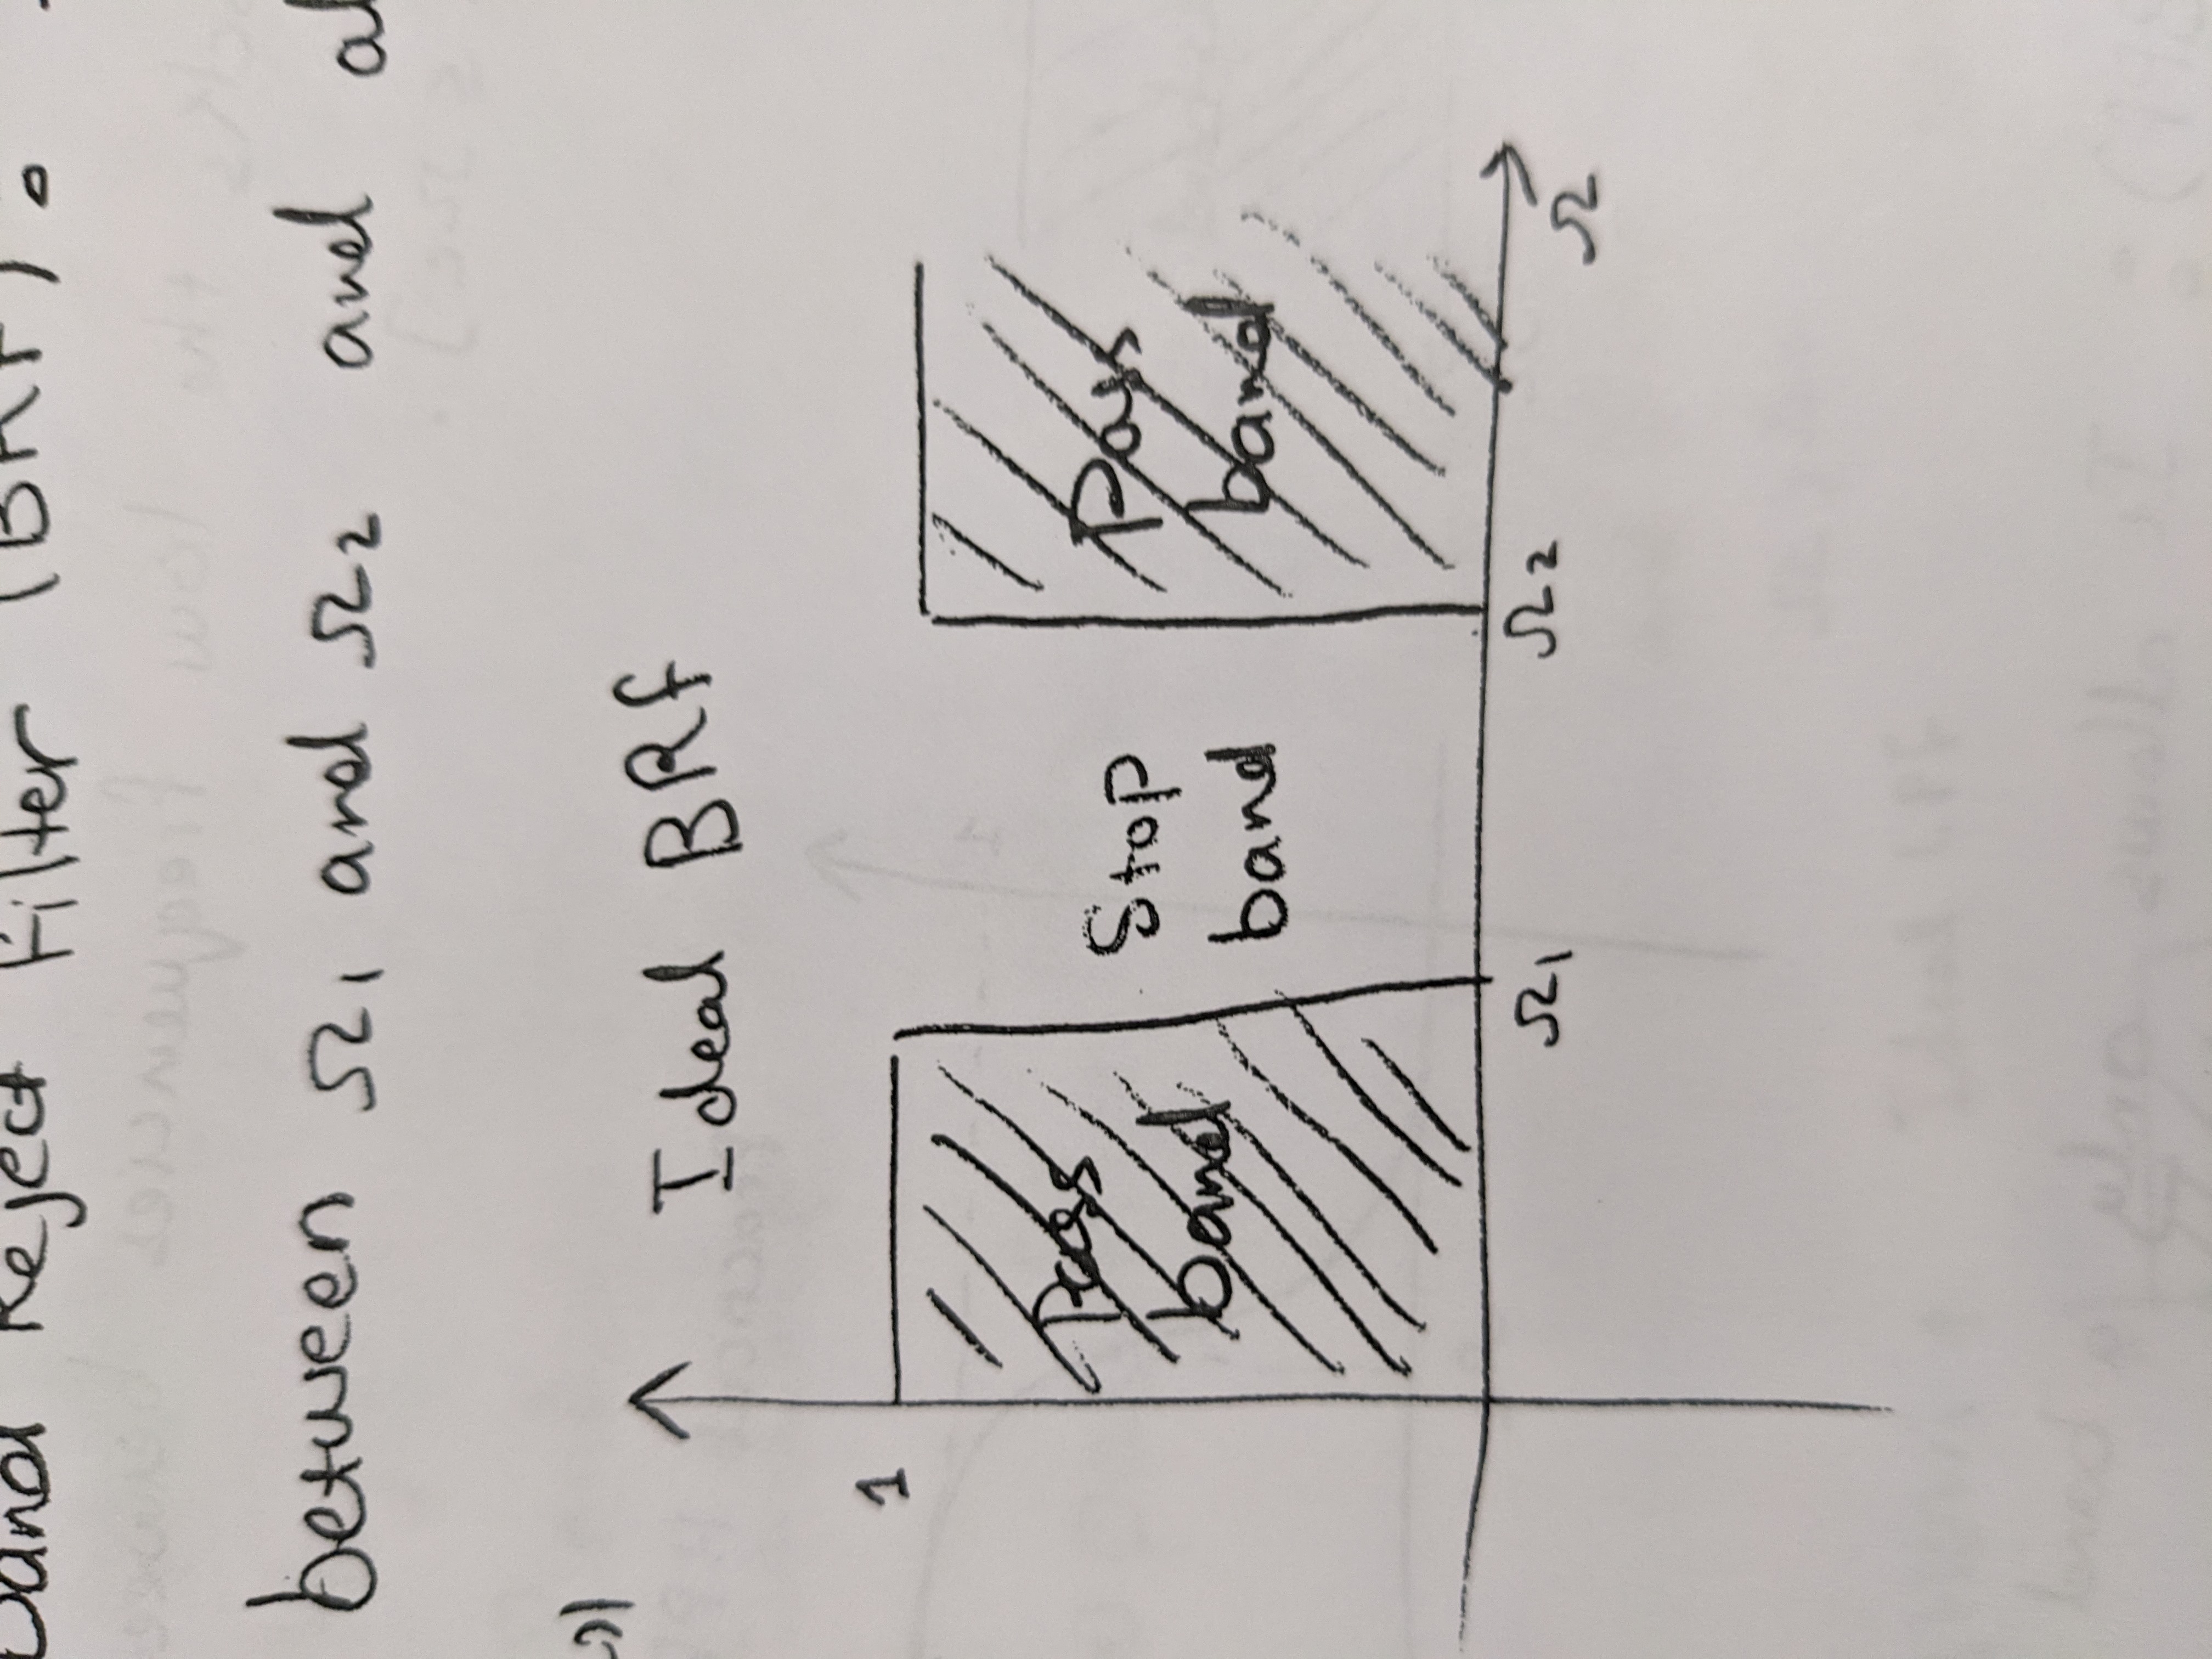 Reject Filter (BRF):
between Ω₁ and Ω₂ and
Ideal BRF
1
Pass
band
Stop
band
Pass
band
Ω₁
Ω₂
Ω